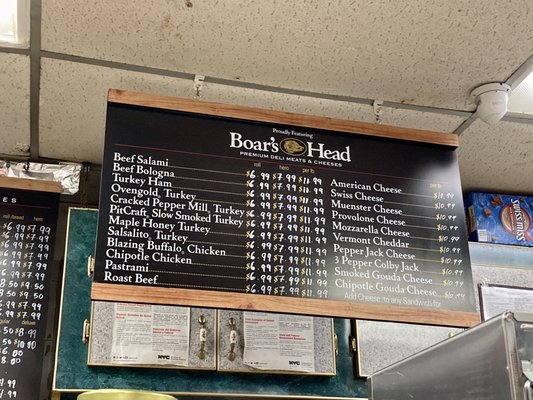 Proudly Featuring
Boar's Head
PREMIUM DELI MEATS & CHEESES
roll hero per lb
Beef Salami $6.99 $7.99 $11.99
Beef Bologna $6.99 $7.99 $11.99
Turkey Ham $6.99 $7.99 $11.99
Ovengold, Turkey $6.99 $7.99 $11.99
Cracked Pepper Mill, Turkey $6.99 $7.99 $11.99
PitCraft, Slow Smoked Turkey $6.99 $7.99 $11.99
Maple Honey Turkey $6.99 $7.99 $11.99
Salsalito, Turkey $6.99 $7.99 $11.99
Blazing Buffalo, Chicken $6.99 $7.99 $11.99
Chipotle Chicken $6.99 $7.99 $11.99
Pastrami $6.99 $7.99 $11.99
Roast Beef $6.99 $7.99 $11.99
per lb
American Cheese $10.99
Swiss Cheese $10.99
Muenster Cheese $10.99
Provolone Cheese $10.99
Mozzarella Cheese $10.99
Vermont Cheddar $10.99
Pepper Jack Cheese $10.99
3 Pepper Colby Jack $10.99
Smoked Gouda Cheese $10.99
Chipotle Gouda Cheese $10.99
Add Cheese to any Sandwich for
roll/bread hero
6.99 $7.99
6.99 $7.99
6.99 $7.99
6.99 $7.99
regular deluxe
NYC
NYC
SWISSMISS